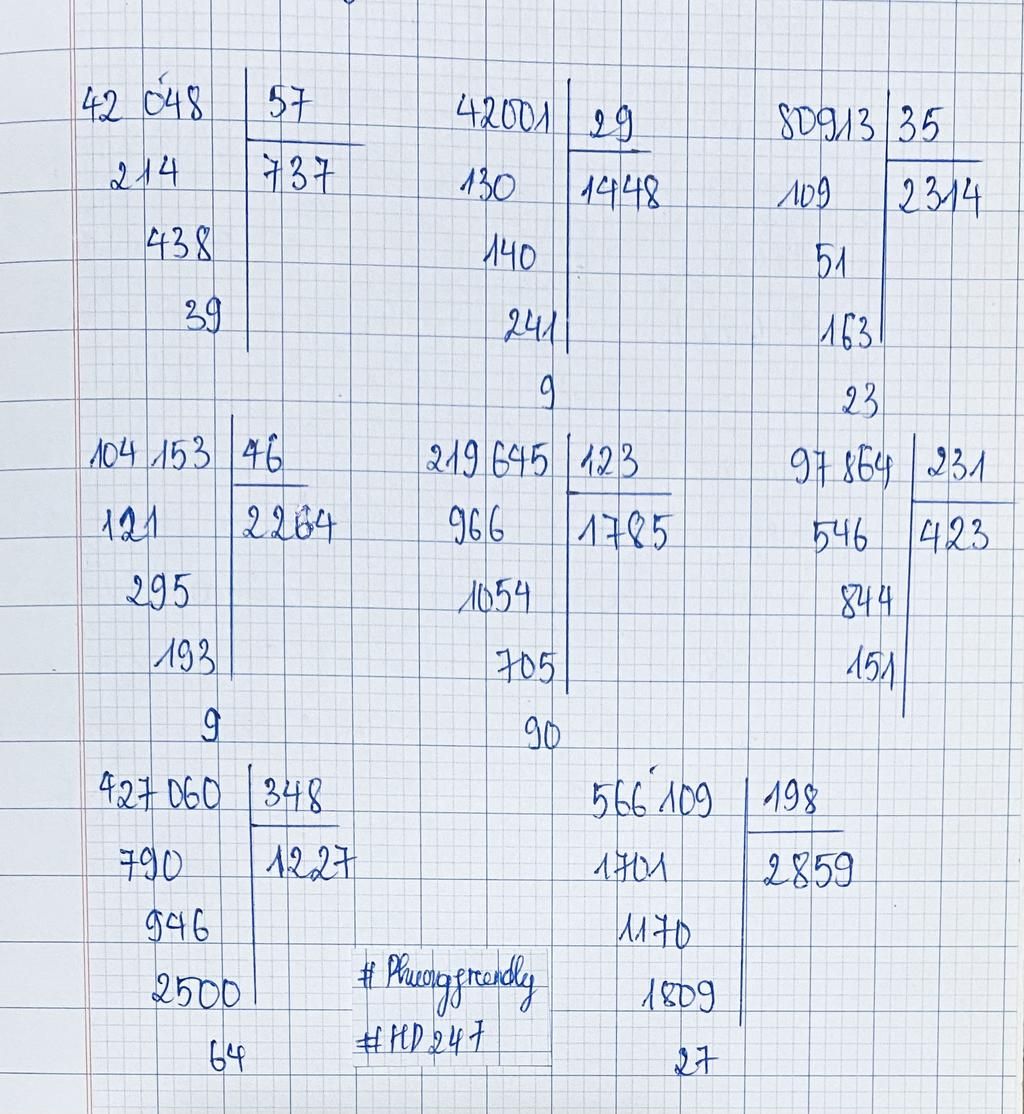 42 048 57
214 737
438
39
42001 29
130 1448
140
241
9
80913 35
109 2314
51
163
23
104 153 46
121 2264
295
193
9
219 645 123
966 1785
1054
705
90
97 864 231
546 423
844
151
427 060 348
790 1227
946
2500
64
566 109 198
1701 2859
1170
1809
27
# Phuongfreendly
#HD247